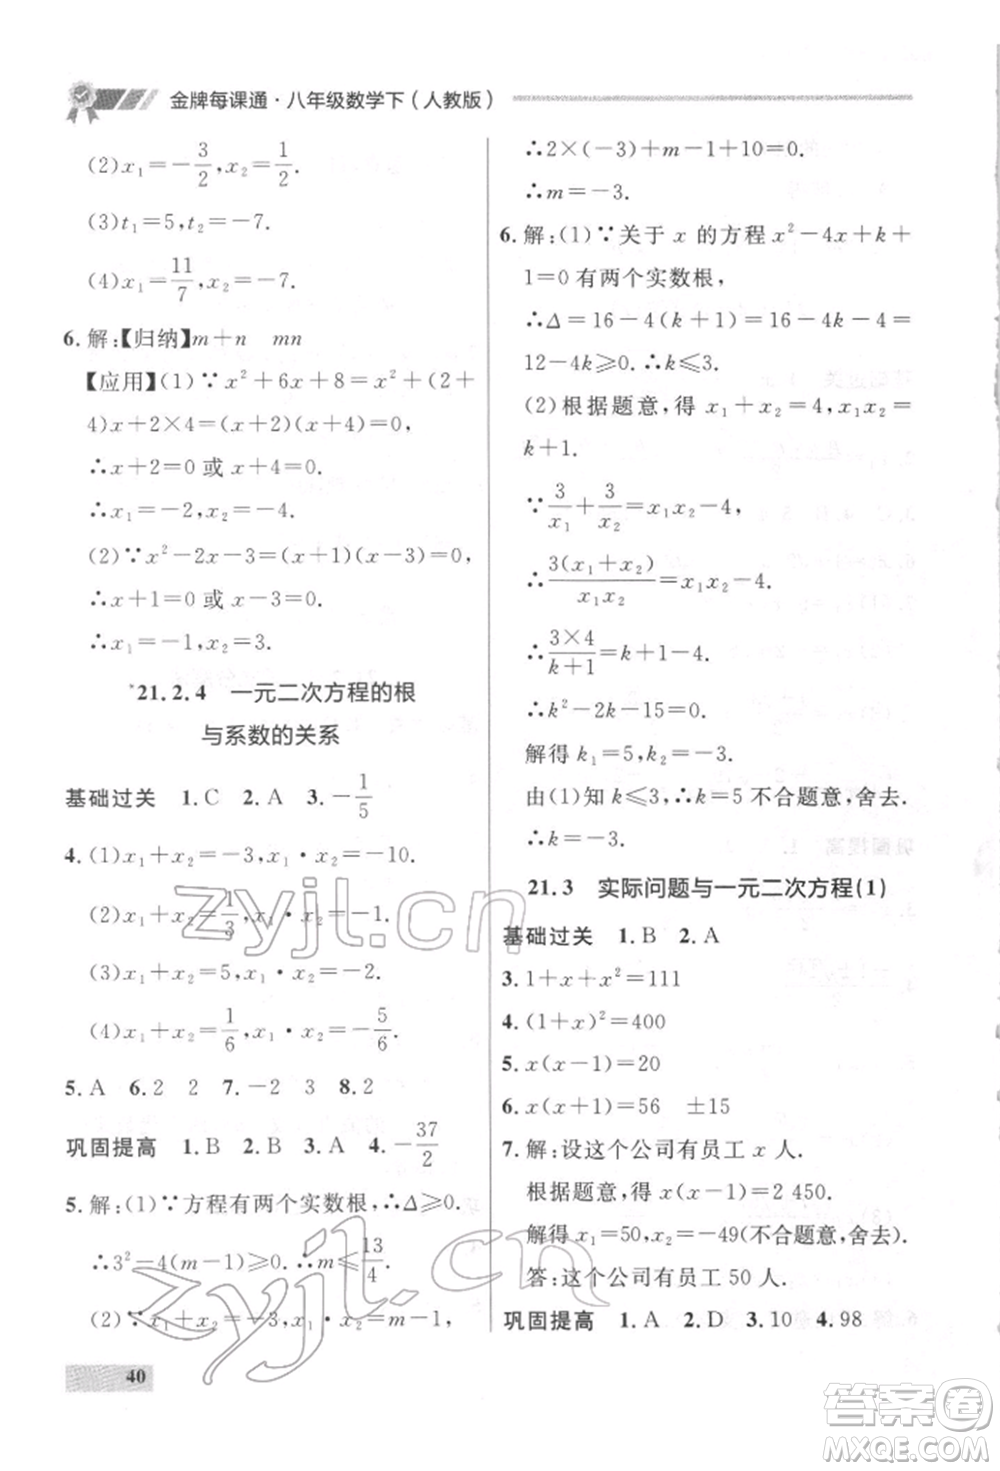 金牌每课通·八年级数学下(人教版)
(2)x₁=-3/2,x₂=1/2.
(3)t₁=5,t₂=-7.
(4)x₁=11/7,x₂=-7.
6.解:【归纳】m+n mn
【应用】(1)∵x²+6x+8=x²+(2+
4)x+2×4=(x+2)(x+4)=0,
∴x+2=0或x+4=0.
∴x₁=-2,x₂=-4.
(2)∵x²-2x-3=(x+1)(x-3)=0,
∴x+1=0或x-3=0.
∴x₁=-1,x₂=3.
21.2.4 一元二次方程的根
与系数的关系
基础过关 1.C 2.A 3.-1/5
4.(1)x₁+x₂=-3,x₁·x₂=-10.
(2)x₁+x₂=-1/3,x₁·x₂=-1.
(3)x₁+x₂=5,x₁·x₂=-2.
(4)x₁+x₂=1/6,x₁·x₂=-5/6.
5.A 6.2 2 7.-2 3 8.2
巩固提高 1.B 2.B 3.A 4.-37/2
5.解:(1)∵方程有两个实数根,∴Δ≥0.
∴3²-4(m-1)≥0.∴m≤13/4.
(2)∵x₁+x₂=-3,x₁x₂=m-1,
∴2×(-3)+m-1+10=0.
∴m=-3.
6.解:(1)∵关于x的方程x²-4x+k+
1=0有两个实数根,
∴Δ=16-4(k+1)=16-4k-4=
12-4k≥0.∴k≤3.
(2)根据题意,得x₁+x₂=4,x₁x₂=
k+1.
∵3/x₁+3/x₂=x₁x₂-4,
∴3(x₁+x₂)/x₁x₂=x₁x₂-4.
∴3×4/k+1=k+1-4.
∴k²-2k-15=0.
解得k₁=5,k₂=-3.
由(1)知k≤3,∴k=5不合题意,舍去.
∴k=-3.
21.3 实际问题与一元二次方程(1)
基础过关 1.B 2.A
3.1+x+x²=111
4.(1+x)²=400
5.x(x-1)=20
6.x(x+1)=56 ±15
7.解:设这个公司有员工x人.
根据题意,得x(x-1)=2 450.
解得x₁=50,x₂=-49(不合题意,舍去).
答:这个公司有员工50人.
巩固提高 1.A 2.D 3.10 4.98
40
zyjl.cn
zyjl.cn
答案圈
MXQE.COM